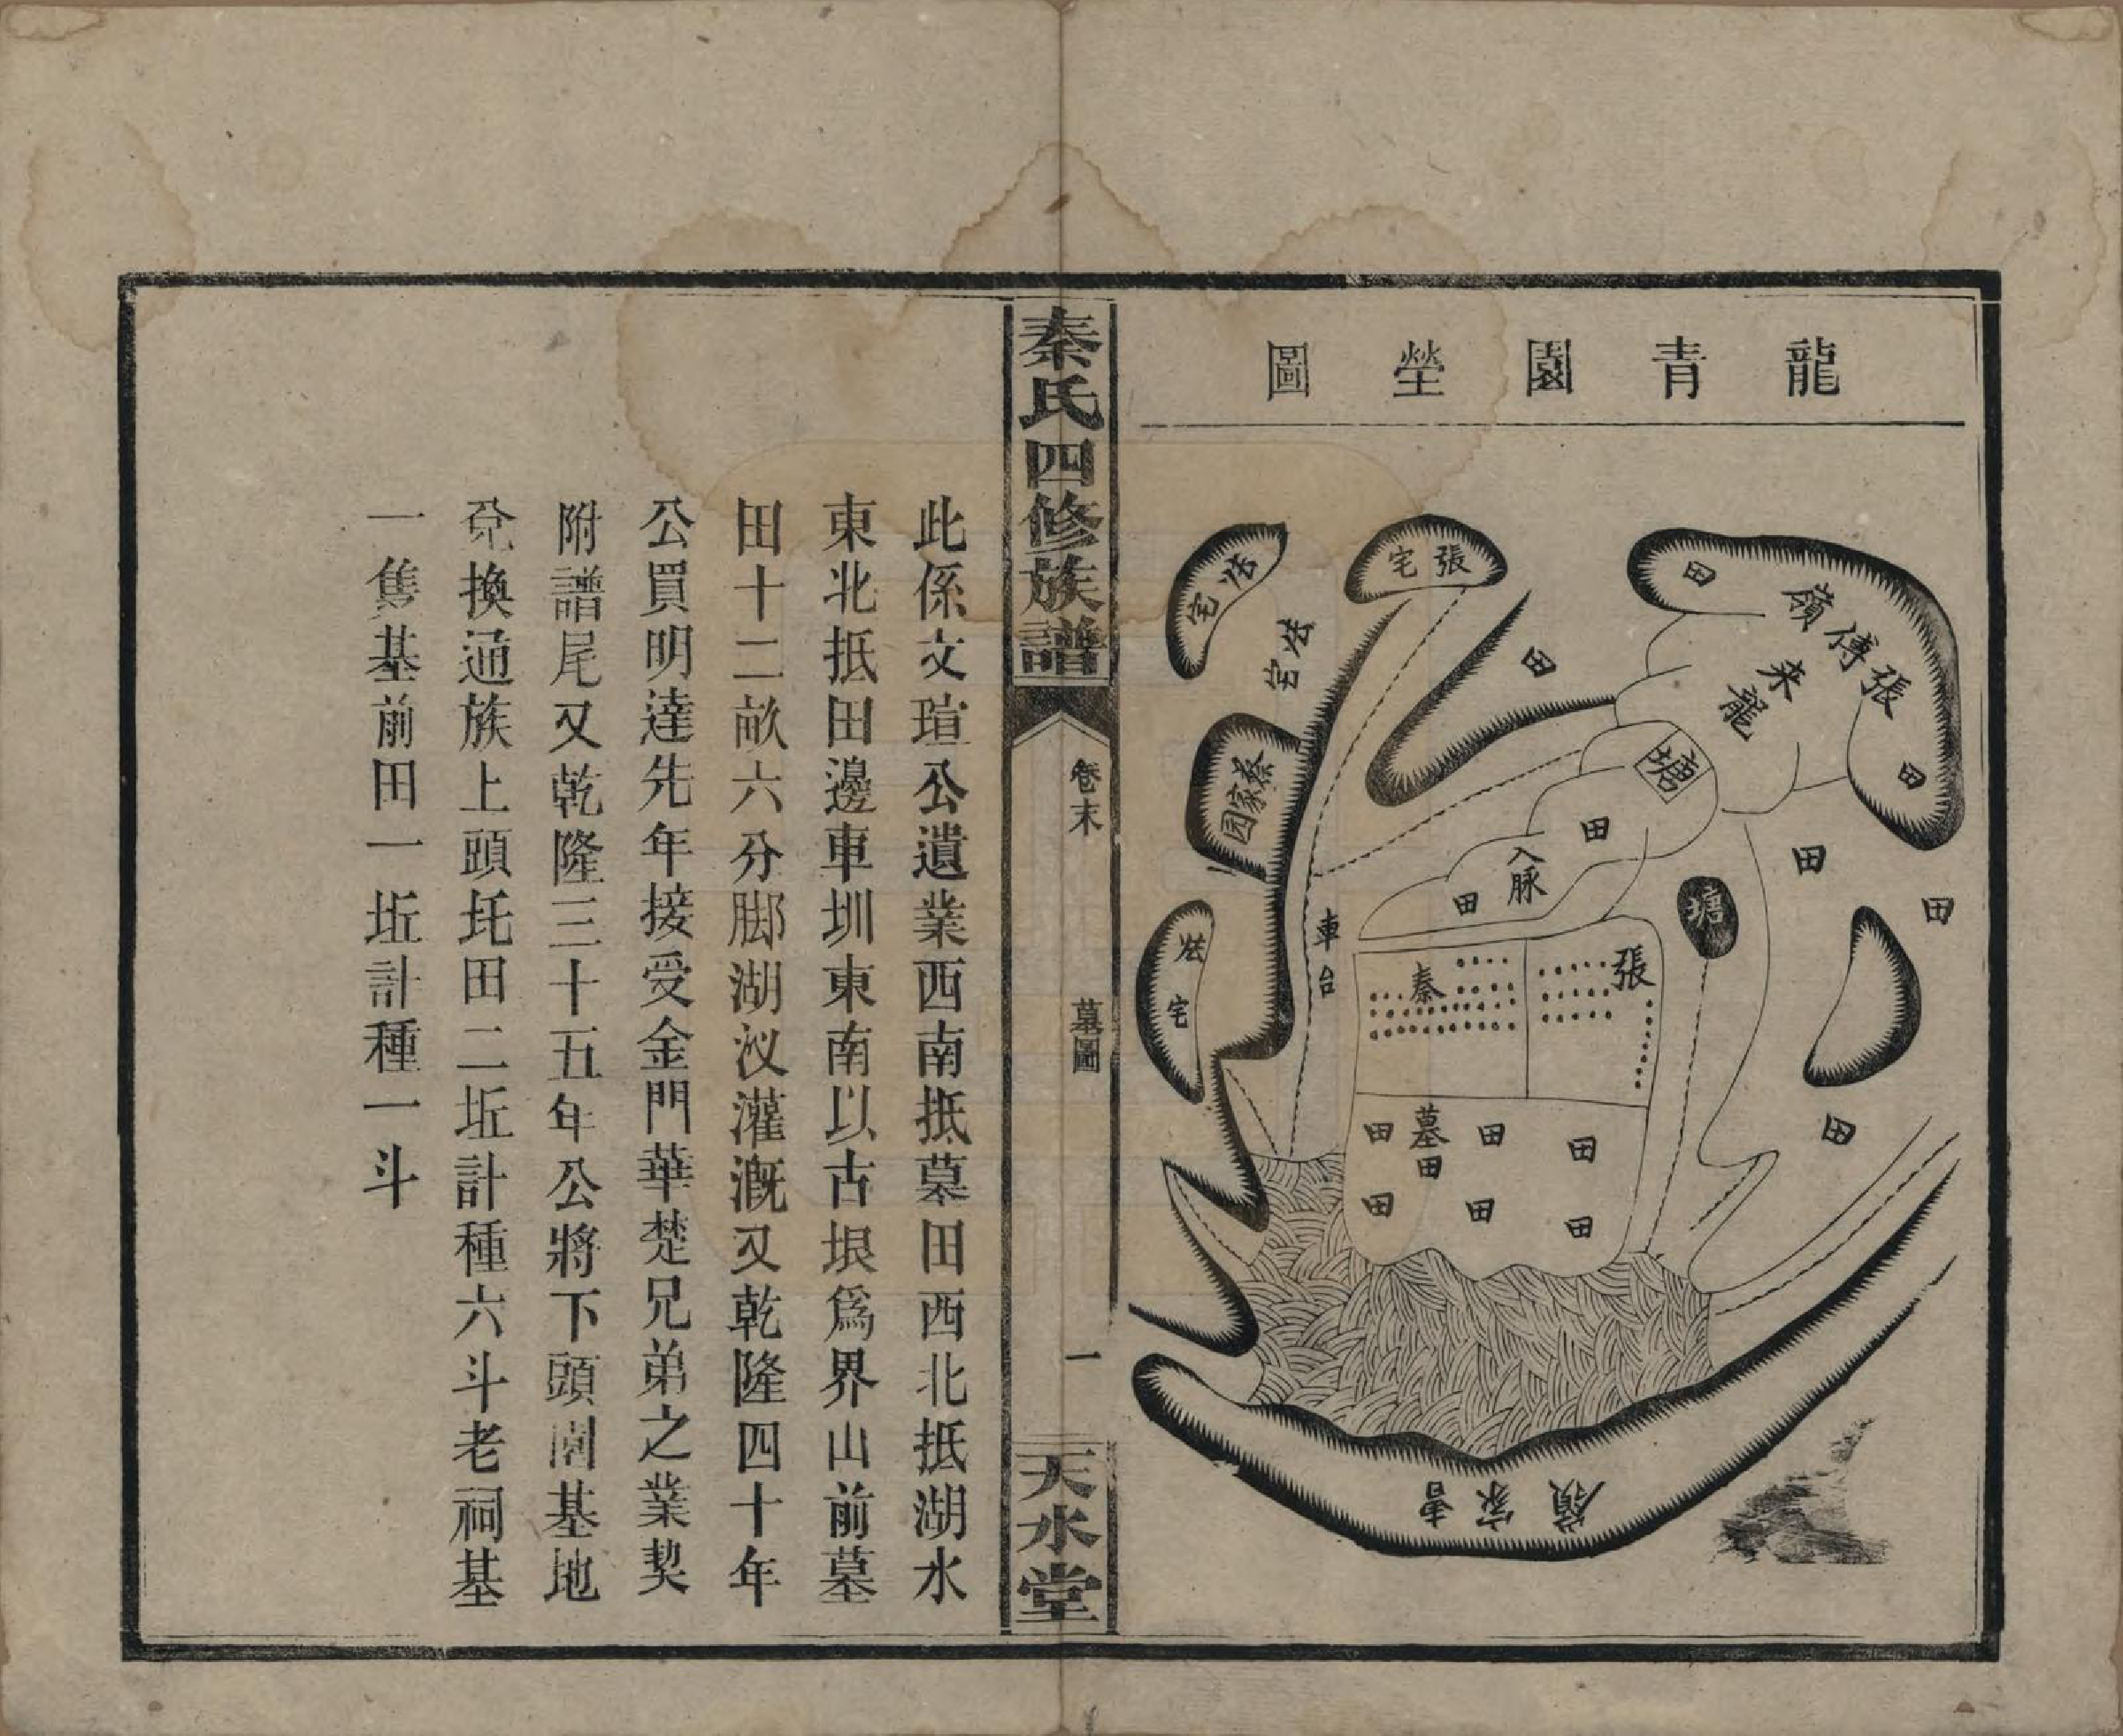 龍青園塋圖
張傳嶺
来龍
田
田
田
塘
田
入脉
田
張宅
車台
塘
田
田
田
秦
張
墓田
田
田
田
田
田
田
宅
宅
蔡家园
宅
秦氏四修族譜
卷末
墓圖
一
天水堂
此係文瑄公遺業西南抵墓田西北抵湖水
東北抵田邊車圳東南以古垠爲界山前墓
田十二畝六分脚湖汊灌溉又乾隆四十年
公買明達先年接受金門華楚兄弟之業契
附譜尾又乾隆三十五年公將下頭園基地
兌換通族上頭圫田二坵計種六斗老祠基
一隻基前田一坵計種一斗